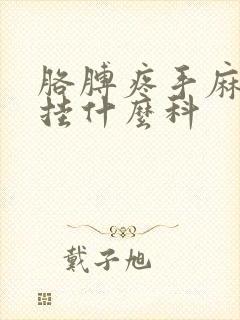 胳膊疼手麻
挂什麼科
戴子旭